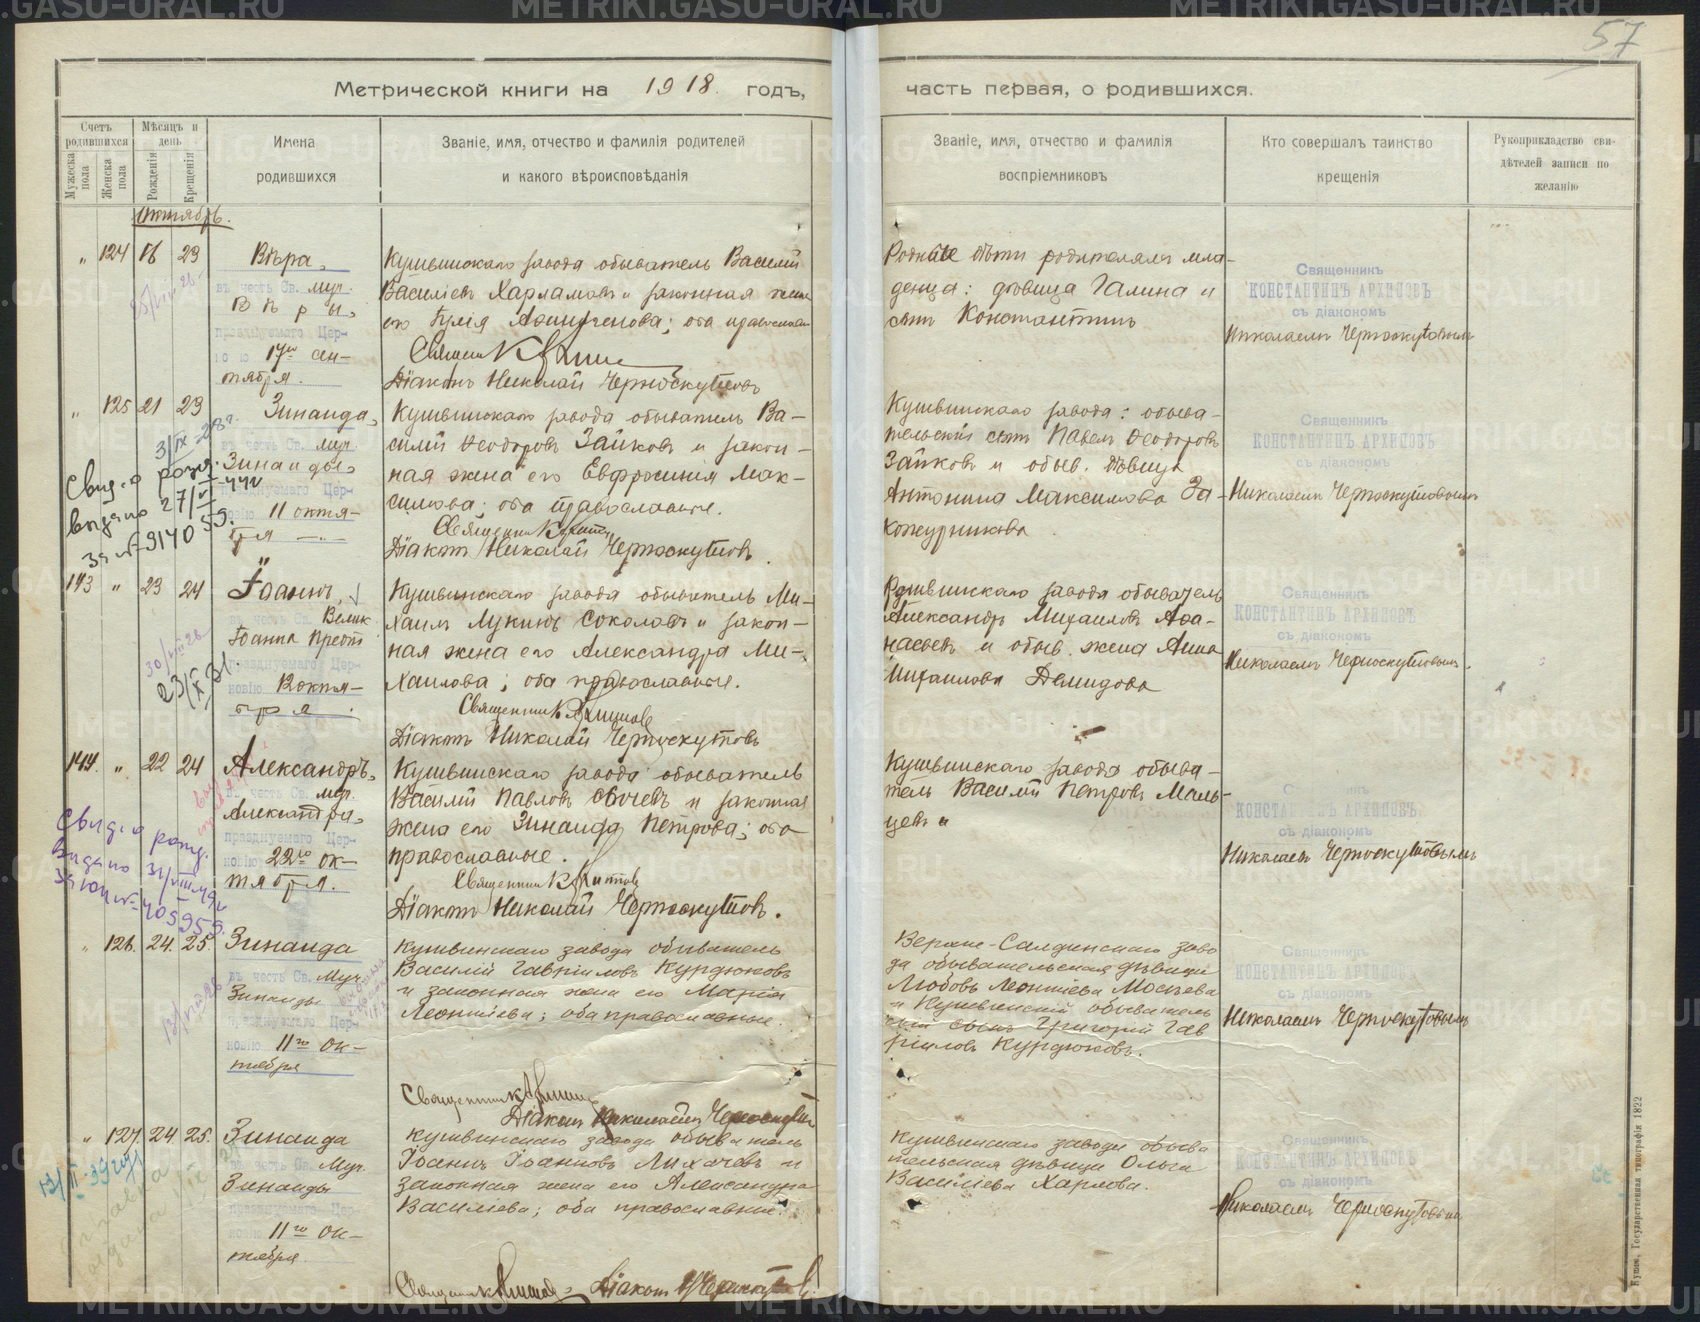 57
Метрической книги на 1918. годъ,
часть первая, о родившихся.
Счетъ родившихся
Мужеска пола
Женска пола
Мѣсяцъ и день
Рожденія
Крещенія
Имена родившихся
Званіе, имя, отчество и фамилія родителей
и какого вѣроисповѣданія
Званіе, имя, отчество и фамилія
воспріемниковъ
Кто совершалъ таинство
крещенія
Рукоприкладство сви-
дѣтелей записи по
желанію
Октябрь.
" 124 16 23
Вѣра,
въ честь Св. муч.
Вѣры,
празднуемаго Цер-
17го сен-
тября.
Кушвинскаго завода обыватель Василій
Василіевъ Харламовъ и законная жена
его Юлія; оба православн
Священ
Діаконъ Николай Черноскутовъ
Родные дѣти родителямъ мла-
денца: дѣвица Галина и
сынъ Константинъ
Священникъ
КОНСТАНТИНЪ АРХИПОВЪ
съ діакономъ
Николаемъ Черноскутовымъ
" 125 21 23
Зинаида,
въ честь Св. муч.
Зинаиды,
празднуемаго Цер-
ковію 11 октя-
бря
3/IX-28 г.
Свид. о рожд.
выдано 27/V-44г
за №914059.
Кушвинскаго завода обыватель Ва-
силій Ѳеодоровъ Зайковъ и закон-
ная жена его Евфросинія Мак-
симова; оба православные.
Священник
Діаконъ Николай Черноскутовъ.
Кушвинскаго завода: обыва-
тельскій сынъ Павелъ Ѳеодоровъ
Зайковъ и обыв. дѣвица
Антонина Максимова За-
кожурникова
Священникъ
КОНСТАНТИНЪ АРХИПОВЪ
съ діакономъ
Николаемъ Черноскутовымъ
143 " 23 24
Іоаннъ,
въ честь Св. Велик
Іоанна
празднуемаго Цер-
ковію 12 октя-
бря.
30/VIII 26
23/X 31.
Кушвинскаго завода обыватель Ми-
хаилъ Лукинъ Соколовъ и закон-
ная жена его Александра Ми-
хаилова; оба православные.
Священник
Діаконъ Николай Черноскутовъ
Кушвинскаго завода обыватель
Александръ Михаиловъ Аѳа-
насьевъ и обыв. жена Анна
Михаилова Демидова
Священникъ
КОНСТАНТИНЪ АРХИПОВЪ
съ діакономъ
Николаемъ Черноскутовымъ.
144. " 22 24
Александръ,
въ честь Св. муч.
Александра,
празднуемаго Цер-
ковію 22го ок-
тября.
Свид. о рожд.
Выдано 31/VIII-49г
за ЮП №405955.
Кушвинскаго завода обыватель
Василій Павловъ и законная
жена его Зинаида Петрова; оба
православные.
Священник
Діаконъ Николай Черноскутовъ.
Кушвинскаго завода обыва-
тель Василій Петровъ Маль-
цевъ
съ діакономъ
Николаемъ Черноскутовымъ
" 126. 24. 25.
Зинаида
въ честь Св. Муч.
Зинаиды
празднуемаго Цер-
ковію 11го ок-
тября
13/VIII 26
Кушвинскаго завода обыватель
Василій Гавриловъ Курдюковъ
и законная жена его Марія
Леонтіева; оба православные.
Священник
Діаконъ Николай
Верхне-Салдинскаго заво
да обывательская дѣвица
Любовь Леонтіева
и Кушвинскій обыватель
скій сынъ Григорій Гав
риловъ Курдюковъ.
Священникъ
КОНСТАНТИНЪ АРХИПОВЪ
съ діакономъ
Николаемъ Черноскутовымъ
" 127. 24. 25.
Зинаида
въ честь Св. Муч.
Зинаиды
празднуемаго Цер-
ковію 11го ок-
тября
Кушвинскаго завода обыватель
Іоаннъ Іоанновъ Лихачевъ и
законная жена его Александра
Василіева; оба православные.
Діаконъ
Кушвинскаго завода обыва
тельская дѣвица Ольга
Василіева Харлова.
Священникъ
КОНСТАНТИНЪ АРХИПОВЪ
съ діакономъ
Николаемъ Черноскутовымъ
Кушв. Государственная типографія 1822
METRIKI.GASU-URAL.RU